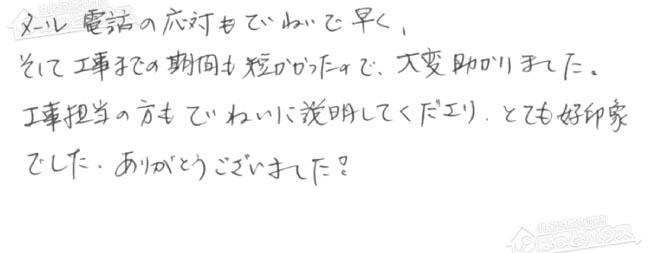 メール 電話の応対もていねいで早く、
そして工事までの期間も短かかったので、大変助かりました。
工事担当の方もていねいに説明してくださり、とても好印象
でした。ありがとうございました!